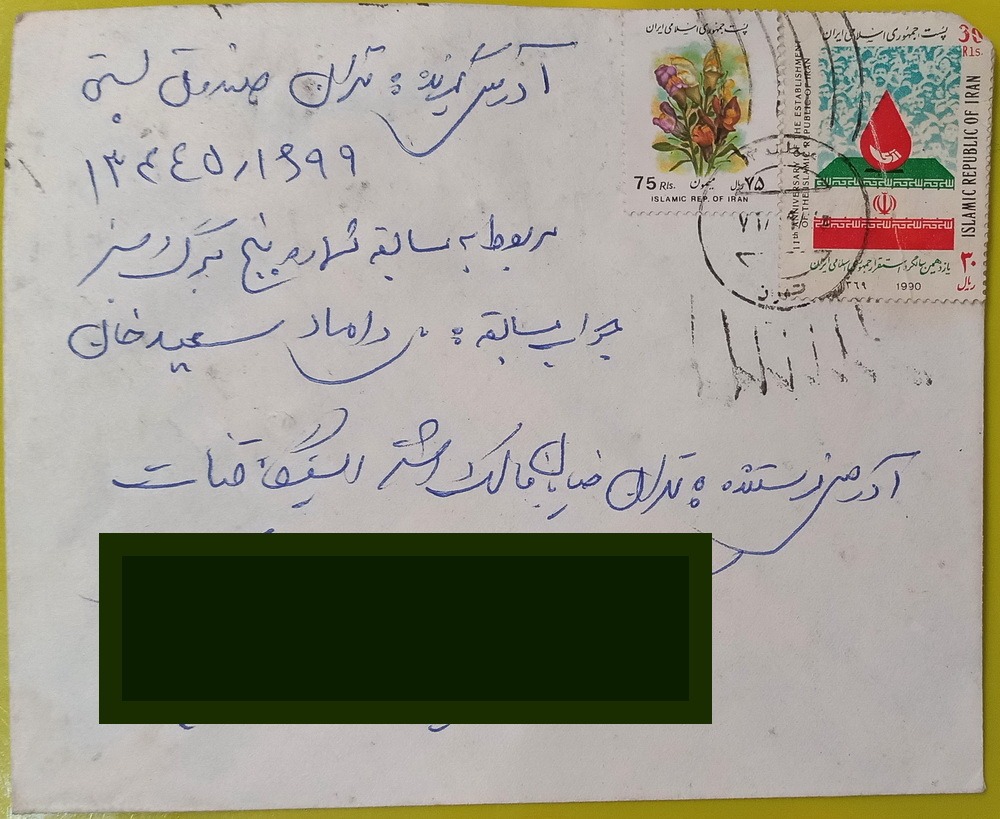 پست جمهوری اسلامی ایران
75 Rls. میمون ۷۵ ریال
ISLAMIC REP. OF IRAN
پست جمهوری اسلامی ایران
30 Rls.
ISLAMIC REPUBLIC OF IRAN
11th ANNIVERSARY OF THE ESTABLISHMENT
OF THE ISLAMIC REPUBLIC OF IRAN
۳۰ ریال
یازدهمین سالگرد استقرار جمهوری اسلامی ایران
۱۳۶۹ 1990
تهران
آدرس گیرنده : تهران صندوق پستی
۱۳۴۴۵/۱۶۹۹
مربوط به مسابقه شماره پنج برگ سبز
جواب مسابقه : داماد سعیدخان
آدرس فرستنده : تهران خیابان مالک اشتر ایستگاه قنات